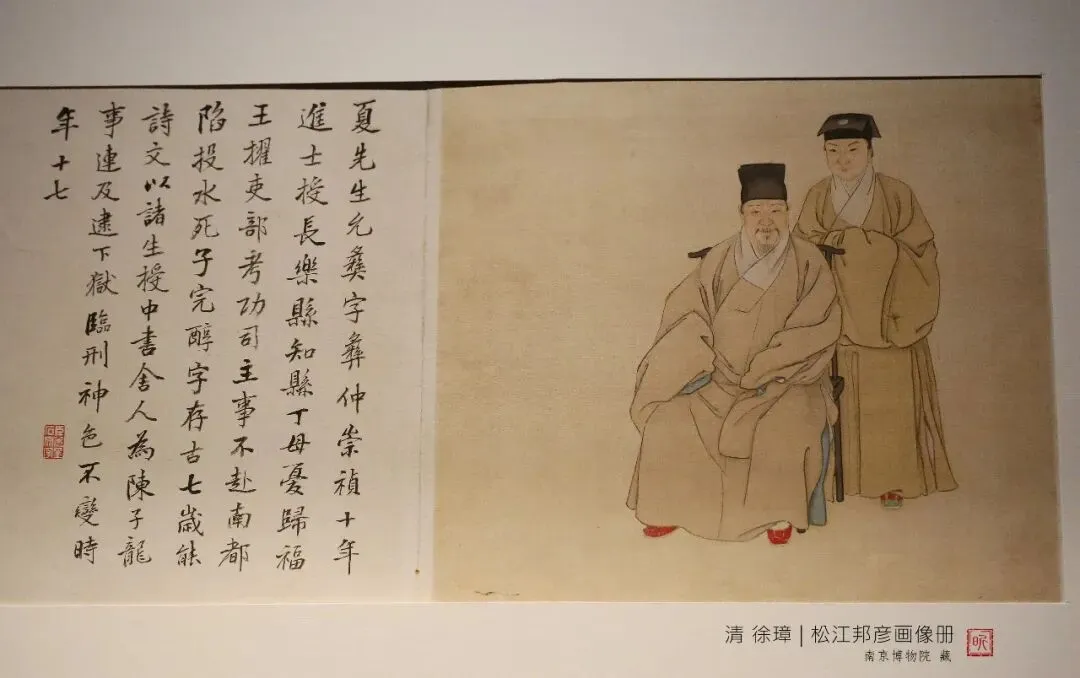 夏先生允彝字彝仲崇禎十年
進士授長樂縣知縣丁母憂歸福
王擢吏部考功司主事不赴南都
陷投水死子完醇字存古七歲能
詩文以諸生授中書舍人為陳子龍
事連及逮下獄臨刑神色不變時
年十七
清 徐璋 | 松江邦彦画像册
南京博物院 藏